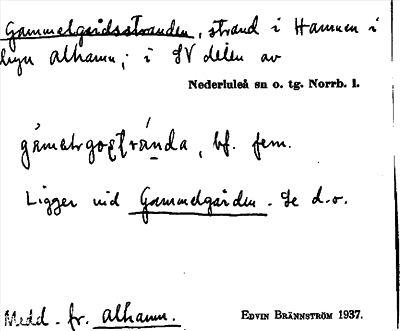 Gammelgårdsstranden, strand i Hamnen i
byn Alhamn; i SV delen av
Nederluleå sn o. tg. Norrb. l.
gámǝlgoʂtránda, bf. fem.
Ligger vid Gammelgården. Se d.o.
Medd. fr. Alhamn.
EDVIN BRÄNNSTRÖM 1937.